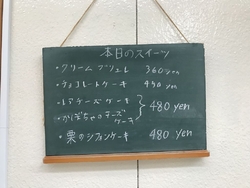 本日のスイーツ
・クリームブリュレ 360 yen
・チョコレートケーキ 450 yen
・レアチーズケーキ
・かぼちゃのチーズケーキ 480 yen
・栗のシフォンケーキ 480 yen